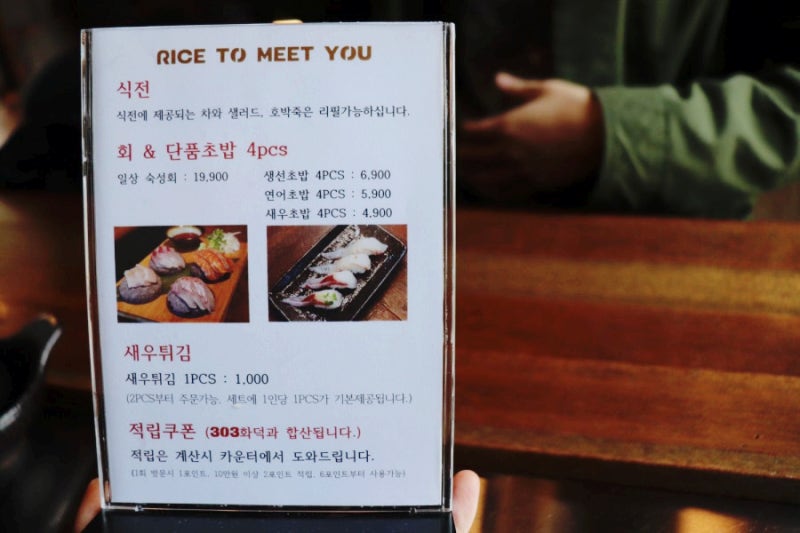 RICE TO MEET YOU
식전
식전에 제공되는 차와 샐러드, 호박죽은 리필가능하십니다.
회 & 단품초밥 4pcs
일상 숙성회 : 19,900
생선초밥 4PCS : 6,900
연어초밥 4PCS : 5,900
새우초밥 4PCS : 4,900
새우튀김
새우튀김 1PCS : 1,000
(2PCS부터 주문가능. 세트에 1인당 1PCS가 기본제공됩니다.)
적립쿠폰 (303화덕과 합산됩니다.)
적립은 계산시 카운터에서 도와드립니다.
(1회 방문시 1포인트, 10만원 이상 2포인트 적립, 6포인트부터 사용가능)